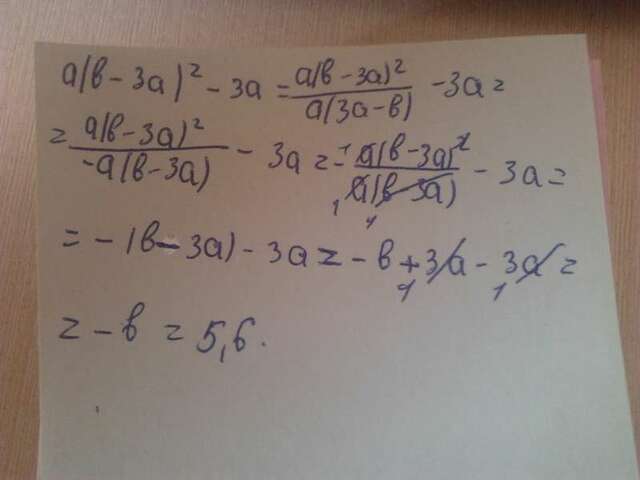 a(в - 3a)² - 3a = a(в - 3a)² / a(3a - в) - 3a =
= a(в - 3a)² / -a(в - 3a) - 3a = - a(в - 3a)² / a(в - 3a) - 3a =
= - (в - 3a) - 3a = - в + 3a - 3a =
= - в = 5,6.